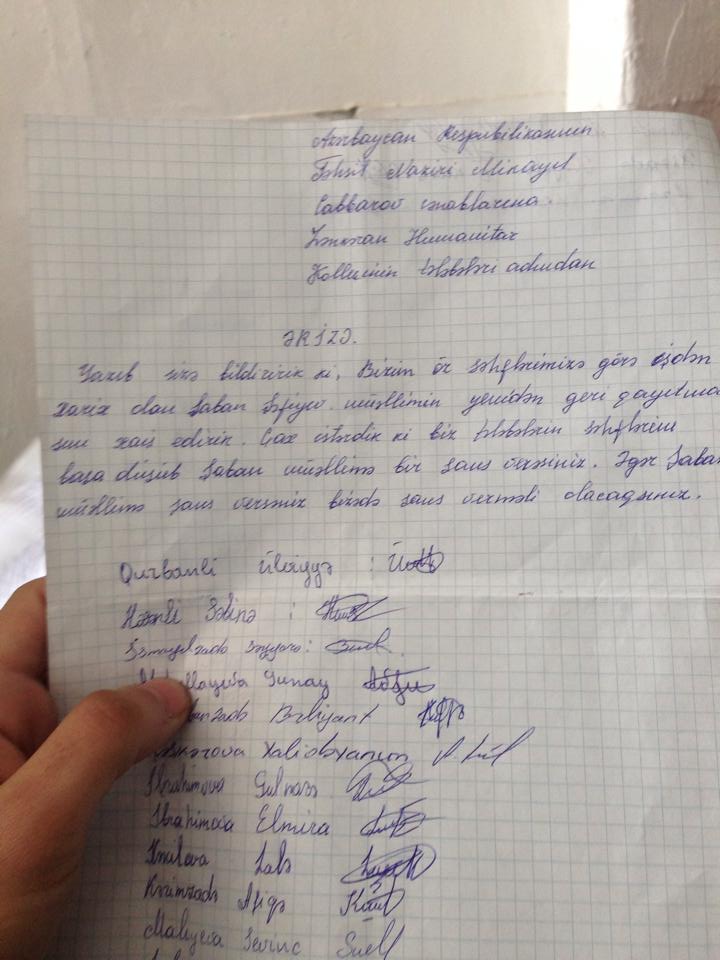 Azərbaycan Respublikasının
Təhsil Naziri Mikayıl
Cabbarov cənablarına.
Lənkəran Humanitar
Kollecinin tələbələri adından
ƏRİZƏ.
Yazıb sizə bildiririk ki, Bizim öz səhflərimizə görə işdən
xaric olan Şaban Səfiyev müəllimin yenidən geri qayıtma
sını xaiş edirik. Çox istərdik ki biz tələbələrin səhflərini
başa düşüb Şaban müəllimə bir şans verəsiniz. Əgər Şaban
müəllimə şans versəniz bizədə şans verməli olacaqsınız.
Qurbanlı Ülviyyə :
Həsənli Səbinə :
İsmayılzadə Səyyarə :
Günay
Briliyant
Xalidəxanım
İbrahimova Gülnarə
İbrahimova Elmira
Lalə
Kərimzadə Afiqə
Maliyeva Sevinc